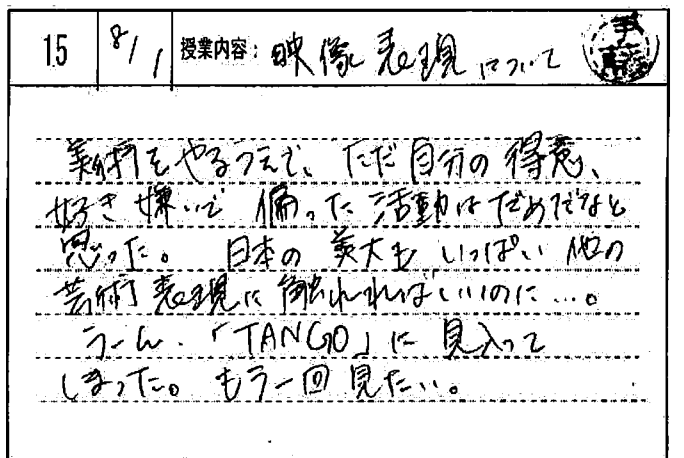 15 8/1 授業内容: 映像表現について
美術をやるうえで、ただ自分の得意、
好き嫌いで偏った活動はだめだなと
思った。 日本の美大もいっぱい他の
芸術表現に触れればいいのに…。
うーん.「TANGO」に見入って
しまった。もう一回見たい。